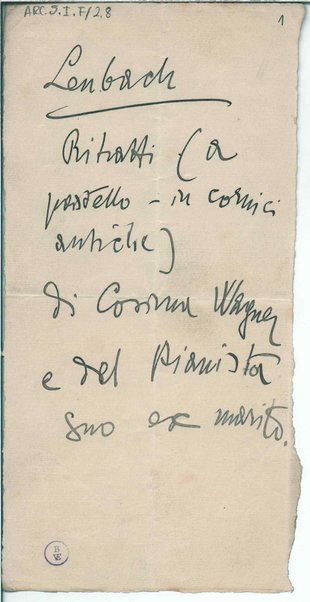 ARC.9.I.F/2.8
1
Lenbach
Ritratti (a
pastello – in cornici
antiche)
di Cosima Wagner
e del Pianista
suo ex marito.
B
VE